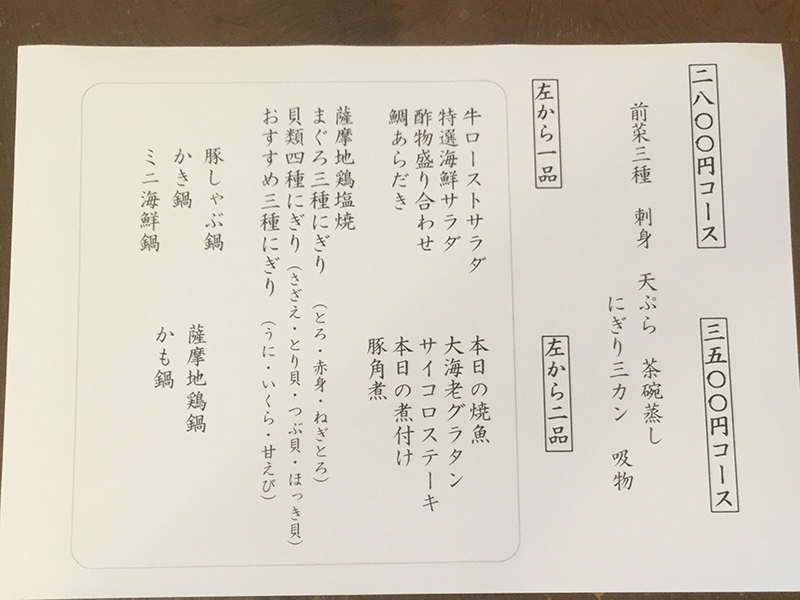 二八〇〇円コース
三五〇〇円コース
前菜三種 刺身 天ぷら 茶碗蒸し
にぎり三カン 吸物
左から一品
左から二品
牛ローストサラダ
特選海鮮サラダ
酢物盛り合わせ
鯛あらだき
本日の焼魚
大海老グラタン
サイコロステーキ
本日の煮付け
豚角煮
薩摩地鶏塩焼
まぐろ三種にぎり（とろ・赤身・ねぎとろ）
貝類四種にぎり（さざえ・とり貝・つぶ貝・ほっき貝）
おすすめ三種にぎり（うに・いくら・甘えび）
豚しゃぶ鍋
かき鍋
ミニ海鮮鍋
薩摩地鶏鍋
かも鍋